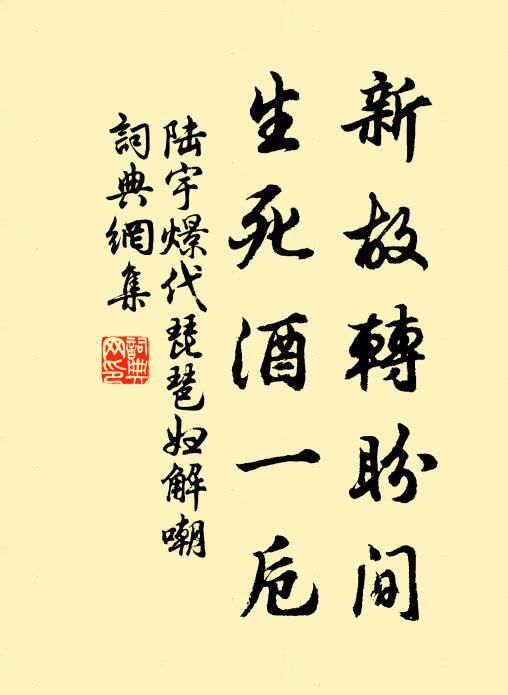 新故轉盼间
生死酒一卮
陆宇燝代琵琶妇解嘲
詞典網集
詞典
网印